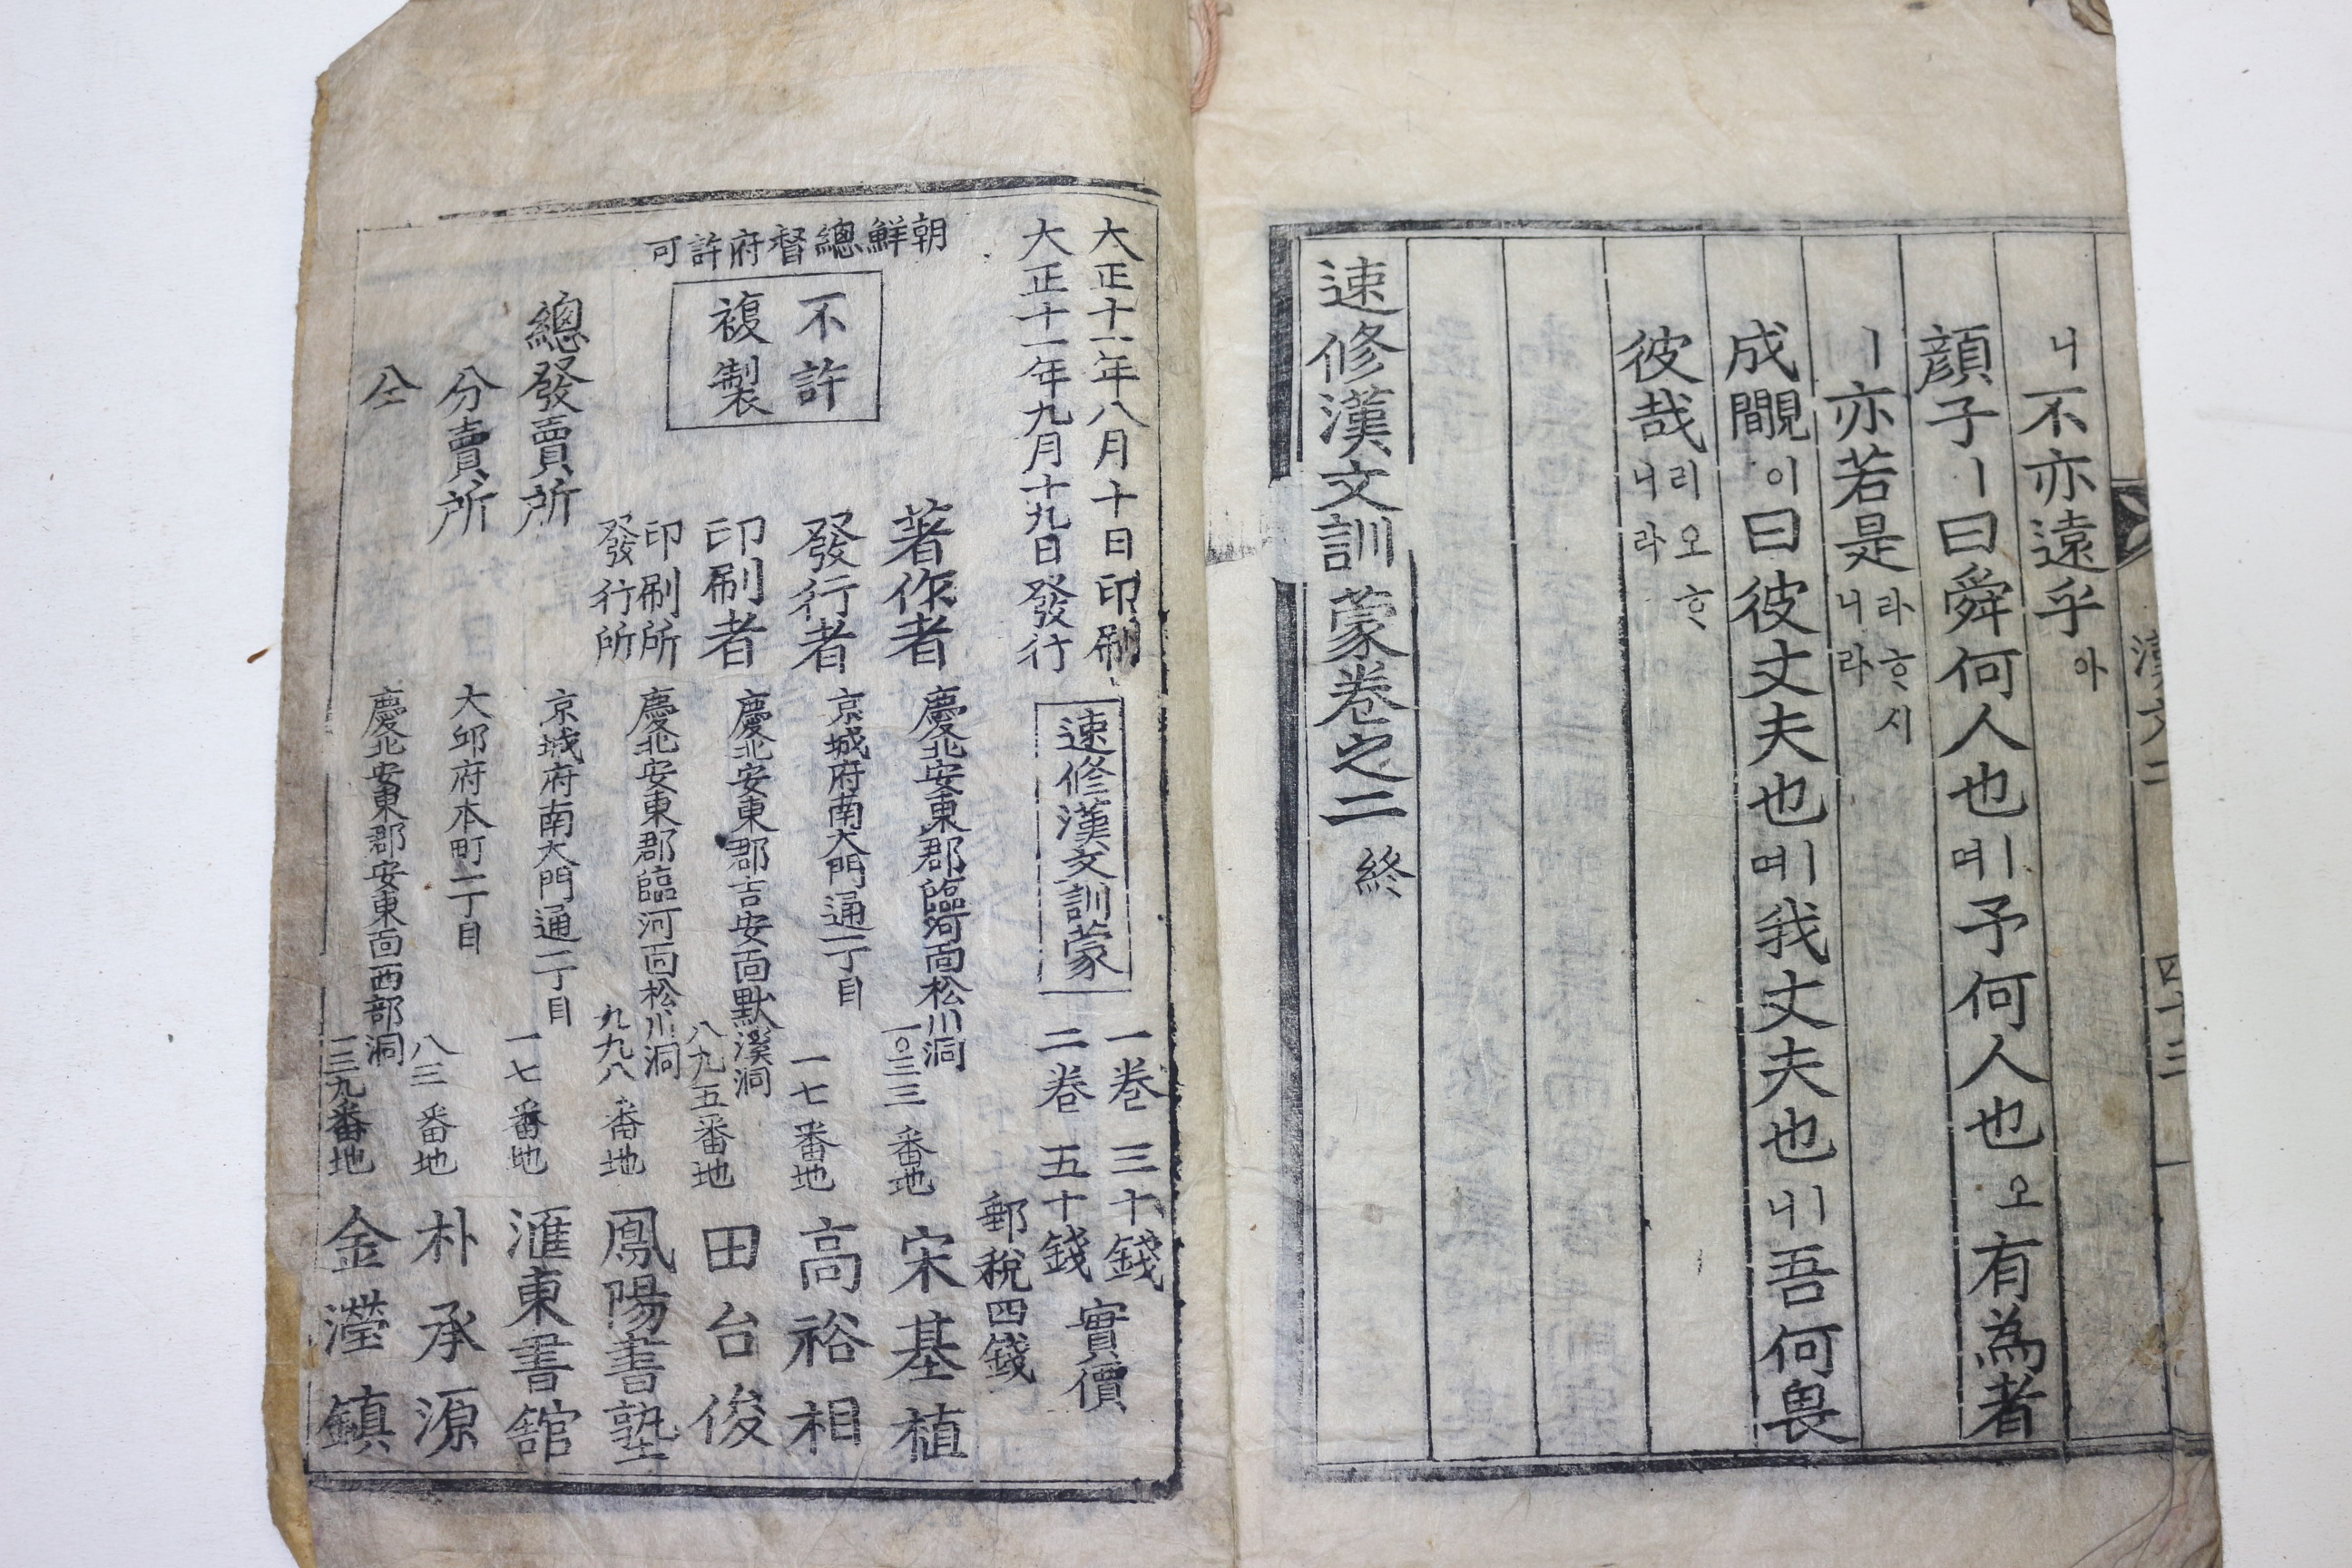 ㅣ니不亦遠乎아
顔子ㅣ曰舜何人也며ㅣ予何人也오有為者
ㅣ亦若是라ᄒᆞ시니라
成覸이曰彼丈夫也며ㅣ我丈夫也니ㅣ吾何畏
彼哉리오ᄒᆞ니라
速修漢文訓蒙卷之二 終
大正十一年八月十日印刷
大正十一年九月十九日發行
速修漢文訓蒙
一卷 三十錢
二卷 五十錢
實價
郵稅四錢
朝鮮總督府許可
不許
複製
著作者 慶北安東郡臨河面松川洞 一〇三三番地 宋基植
發行者 京城府南大門通一丁目 一七番地 高裕相
印刷者 慶北安東郡吉安面默溪洞 八九五番地 田台俊
印刷所
發行所 慶北安東郡臨河面松川洞 九九八番地 鳳陽書塾
總發賣所 京城府南大門通一丁目 一七番地 滙東書舘
分賣所 大邱府本町二丁目 八三番地 朴承源
仝 慶北安東郡安東面西部洞 一三九番地 金瀅鎮